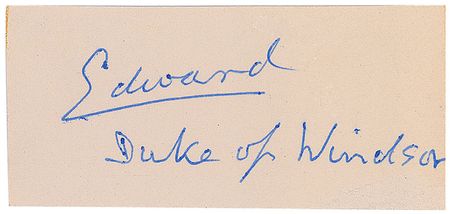 Edward
Duke of Windsor